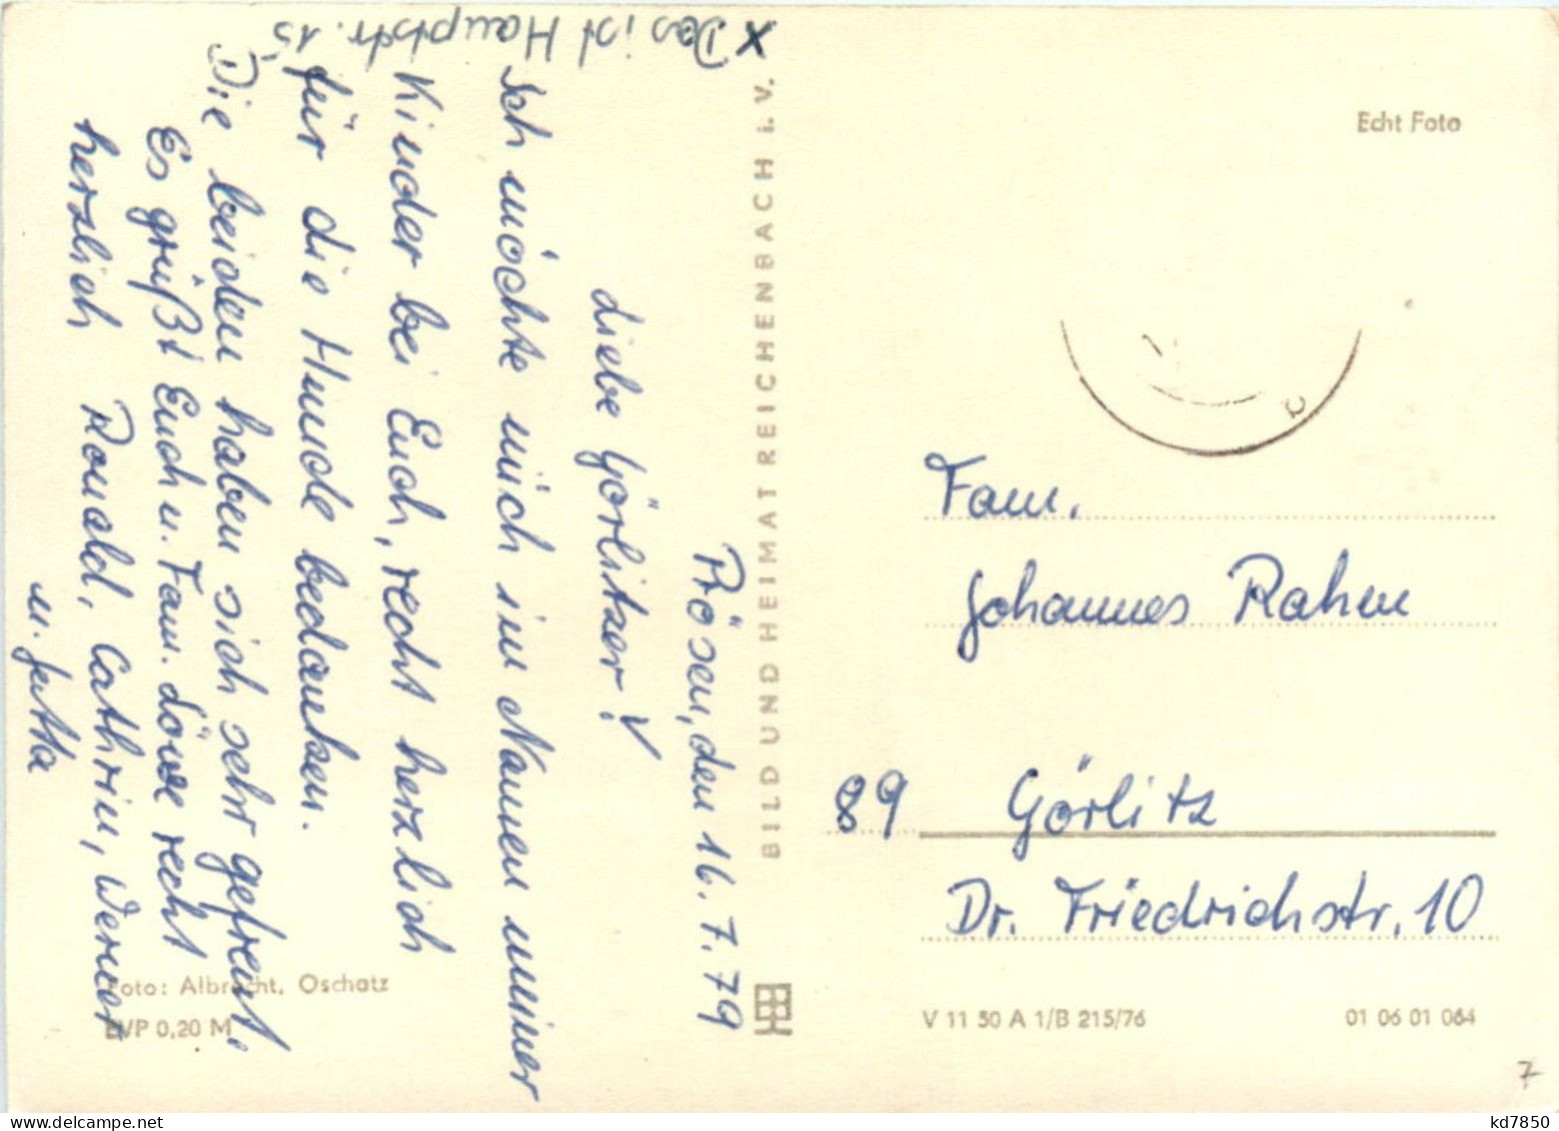 x Das ist Hauptstr. 15
Prösen, den 16. 7. 79
Liebe Görlitzer!
Ich möchte mich im Namen meiner
Kinder bei Euch, recht herzlich
für die Hunde bedanken.
Die beiden haben sich sehr gefreut.
Es grüßt Euch u. Fam. Löwe recht
herzlich Ronald, Cathrin, Werner
u. Jutta
Foto: Albrecht, Oschatz
EVP 0,20 M
BILD UND HEIMAT REICHENBACH I. V.
Echt Foto
Fam.
Johannes Rahm
89 Görlitz
Dr. Friedrichstr. 10
V 11 50 A 1/B 215/76
01 06 01 064
7
kd7850
delcampe.net